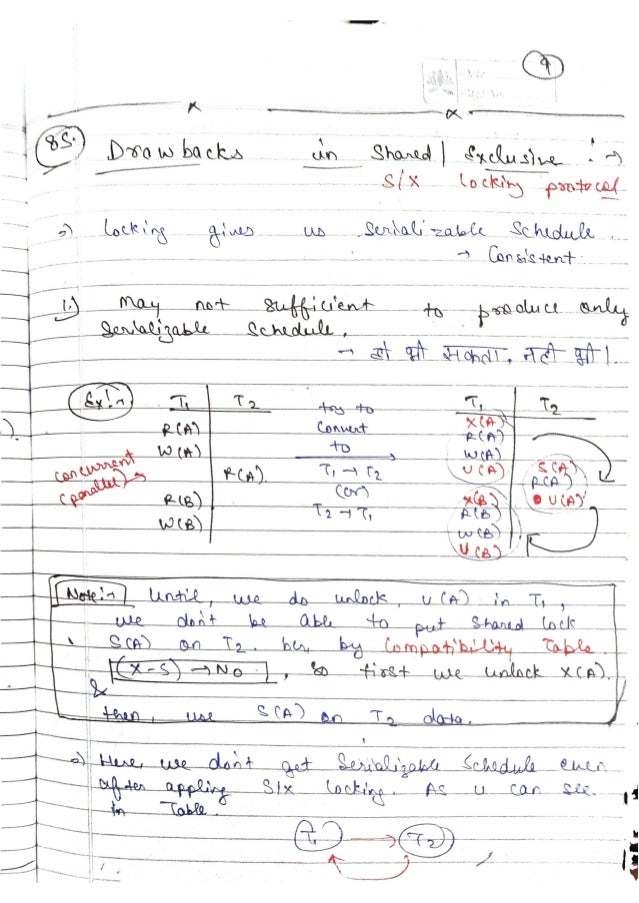 9
85. Drawbacks in Shared/Exclusive :→
S/X locking protocol
⇒ Locking gives us Serializable Schedule.
→ Consistent
1.) May not sufficient to produce only
Serializable Schedule.
→ हो भी सकता, नही भी।
Ex:→
T1 T2
R(A)
W(A)
R(A)
R(B)
W(B)
concurrent
(parallel) →
try to
Convert
to
T1 → T2
(or)
T2 → T1
T1 T2
X(A)
R(A)
W(A)
U(A) S(A)
R(A)
U(A)
X(B)
R(B)
W(B)
U(B)
Note:→ Until, we do unlock, U(A) in T1,
we don't be able to put Shared lock
S(A) on T2. bcz, by Compatibility Table.
(X-S) → No, so first we unlock X(A).
&
then, use S(A) on T2 data.
⇒ Here, we don't get Serializable Schedule even
after appling S/X locking. As u can see.
in Table.
T1 T2